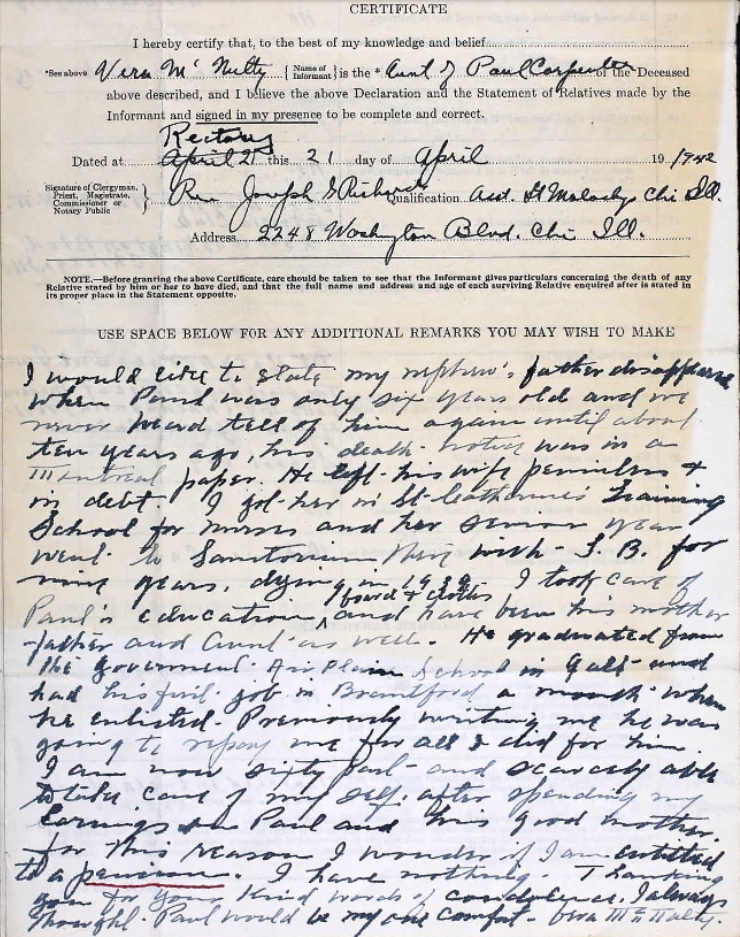 CERTIFICATE
I hereby certify that, to the best of my knowledge and belief
*See above Vera Mc Nulty { Name of Informant } is the * Aunt of Paul Carpenter of the Deceased
above described, and I believe the above Declaration and the Statement of Relatives made by the
Informant and signed in my presence to be complete and correct.
Rectory
Dated at April 21 this 21 day of April 19 1942
Signature of Clergyman, Priest, Magistrate, Commissioner or Notary Public } Rev Joseph Qualification Asst. St Malachy Chi Ill.
Address 2248 Washington Blvd. Chi Ill.
NOTE.—Before granting the above Certificate, care should be taken to see that the Informant gives particulars concerning the death of any
Relative stated by him or her to have died, and that the full name and address and age of each surviving Relative enquired after is stated in
its proper place in the Statement opposite.
USE SPACE BELOW FOR ANY ADDITIONAL REMARKS YOU MAY WISH TO MAKE
I would like to state my nephew's father disappeared
when Paul was only six years old and we
never heard tell of him again until about
ten years ago, his death notice was in a
Montreal paper. He left his wife penniless +
in debt. I got her in St Catharines Training
School for nurses and her senior year
went to Sanitorium there with T. B. for
nine years, dying in 1939. I took care of
board + clothes
Paul's education, and have been his mother
father and Aunt as well. He graduated from
the Government Air Plane School in Galt and
had his first job in Brantford a month when
he enlisted. Previously writing me he was
going to repay me for all I did for him.
I am now sixty past and scarcely able
to take care of my self, after spending my
earnings on Paul and his good mother.
for this reason I wonder if I am entitled
to a pension. I have nothing. Thanking
you for your kind words of condolence. I always
thought Paul would be my one comfort. Vera McNulty.